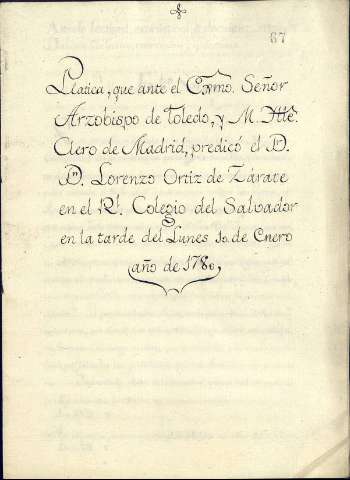 87
Platica, que ante el Exmo. Señor
Arzobispo de Toledo, y M. Iltê.
Clero de Madrid, predicó el D.
Dn. Lorenzo Ortiz de Zárate
en el Rl. Colegio del Salvador
en la tarde del Lunes 10. de Enero
año de 1780,